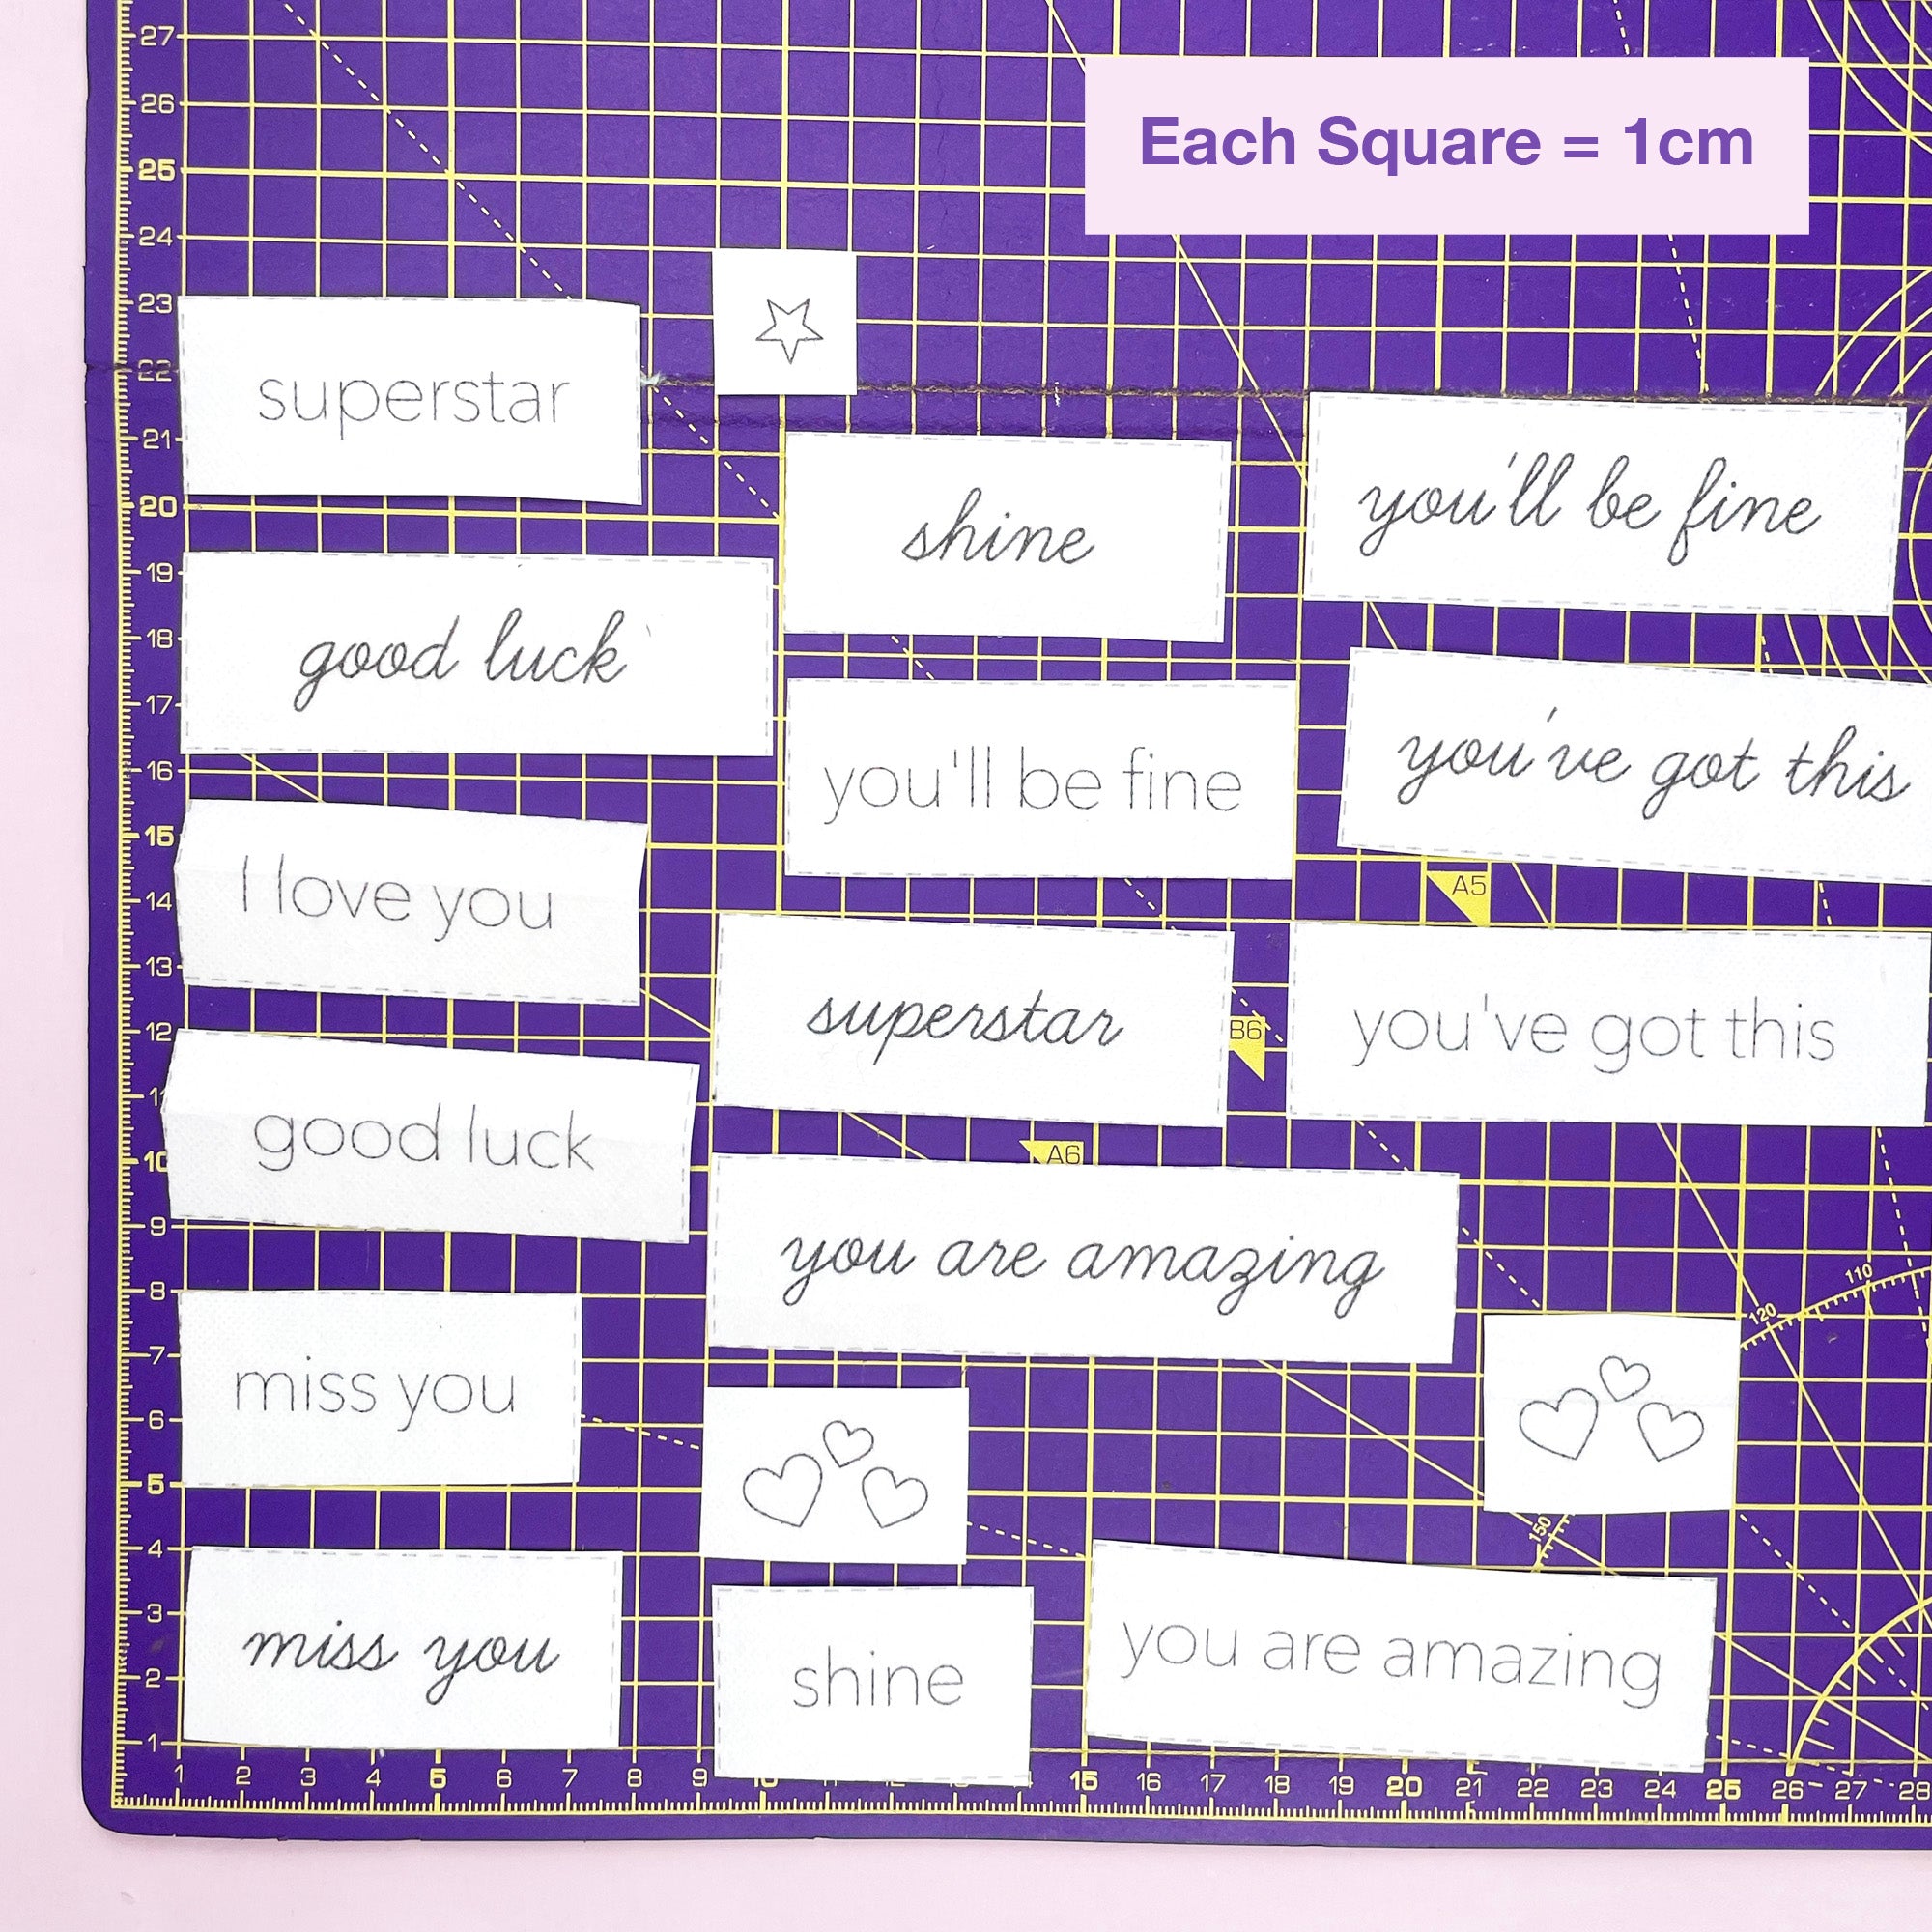 Each Square = 1cm
superstar
shine
you'll be fine
good luck
you'll be fine
you've got this
I love you
superstar
you've got this
good luck
you are amazing
miss you
miss you
shine
you are amazing
A5
B6
A6
110
120
150
27
26
25
24
23
22
21
20
19
18
17
16
15
14
13
12
11
10
9
8
7
6
5
4
3
2
1
1 2 3 4 5 6 7 8 9 10 11 12 13 14 15 16 17 18 19 20 21 22 23 24 25 26 27 28